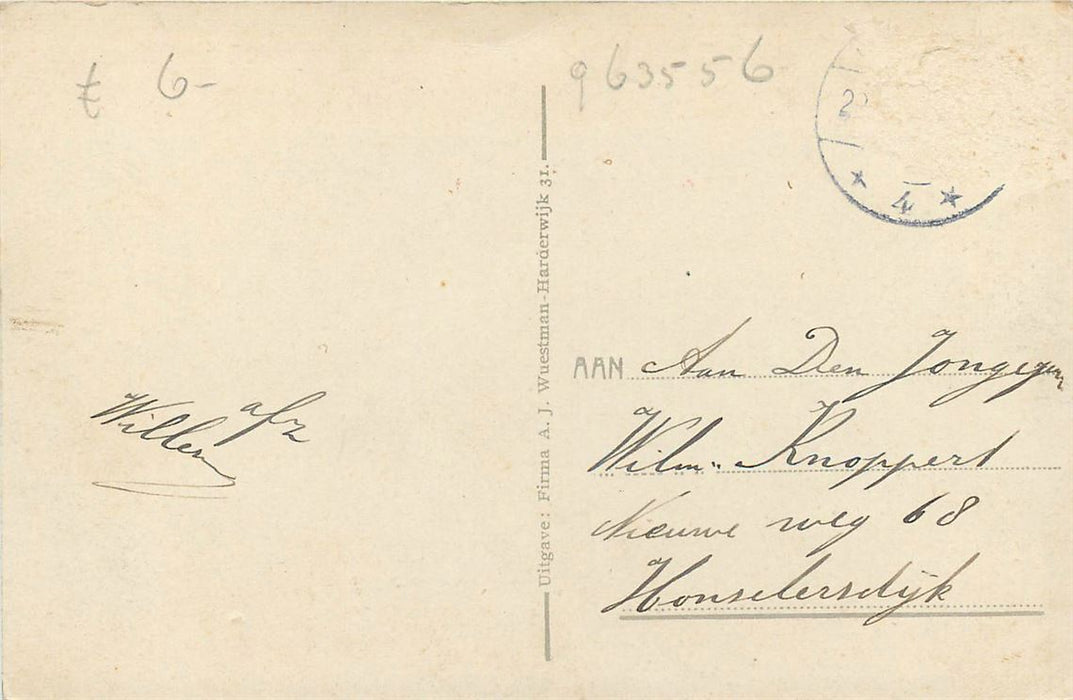 t 6-
963556
2
* 4 *
Uitgave: Firma A. J. Wuestman-Harderwijk 31.
afz
Willem
AAN Aan Den Jongeheer
Wilm: Knoppert
Nieuwe weg 68
Honselersdijk